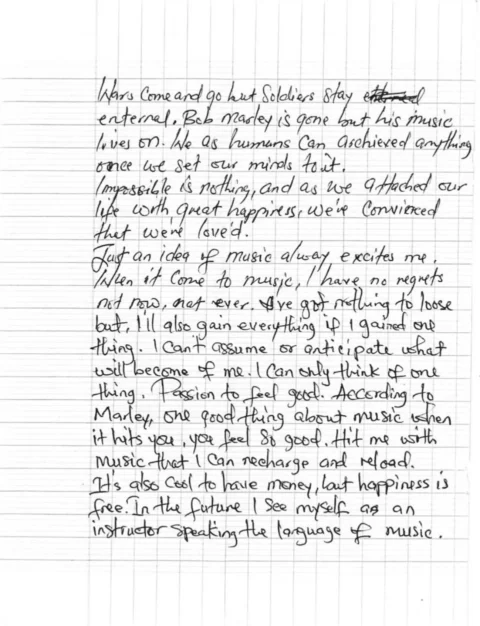 Wars come and go but Soldiers stay
enternal. Bob Marley is gone but his music
lives on. We as humans can archieved anything
once we set our minds to it.
Impossible is nothing, and as we attached our
life with great happiness, we're convienced
that we're love'd.
Just an idea of music alway excites me.
When it come to music, I have no regrets
not now, not ever. I've got nothing to loose
but, I'll also gain everything if I gained one
thing. I can't assume or anticipate what
will become of me. I can only think of one
thing. Passion to feel good. According to
Marley, one good thing about music when
it hits you, you feel so good. Hit me with
music that I can recharge and reload.
It's also cool to have money, but happiness is
free. In the future I see myself as an
instructor speaking the language of music.